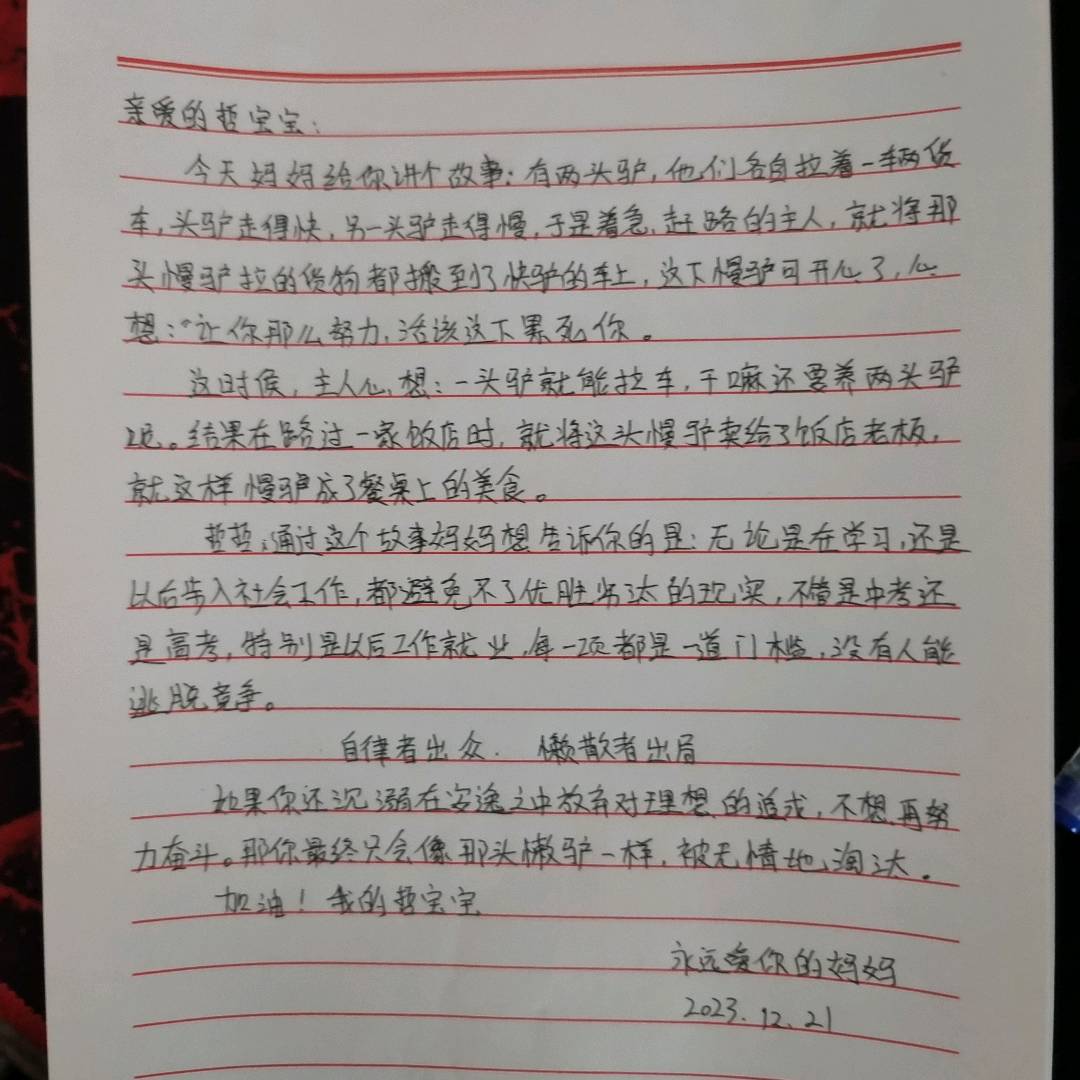 亲爱的哲宝宝：
今天妈妈给你讲个故事：有两头驴，他们各自拉着一车两货
车，头驴走得快，另一头驴走得慢，于是着急赶路的主人，就将那
头慢驴拉的货物都搬到了快驴的车上，这下慢驴可开心了，心
想：“让你那么努力，活该这下累死你。
这时候，主人心想：一头驴就能拉车，干嘛还要养两头驴
呢。结果在路过一家饭店时，就将这头慢驴卖给了饭店老板，
就这样慢驴成了餐桌上的美食。
哲哲，通过这个故事妈妈想告诉你的是：无论是在学习，还是
以后步入社会工作，都避免不了优胜劣汰的现实，不管是中考还
是高考，特别是以后工作就业，每一项都是一道门槛，没有人能
逃脱竞争。
自律者出众，懒散者出局
如果你还沉溺在安逸之中放弃对理想的追求，不想再努
力奋斗。那你最终只会像那头懒驴一样，被无情地淘汰。
加油！我的哲宝宝
永远爱你的妈妈
2023.12.21